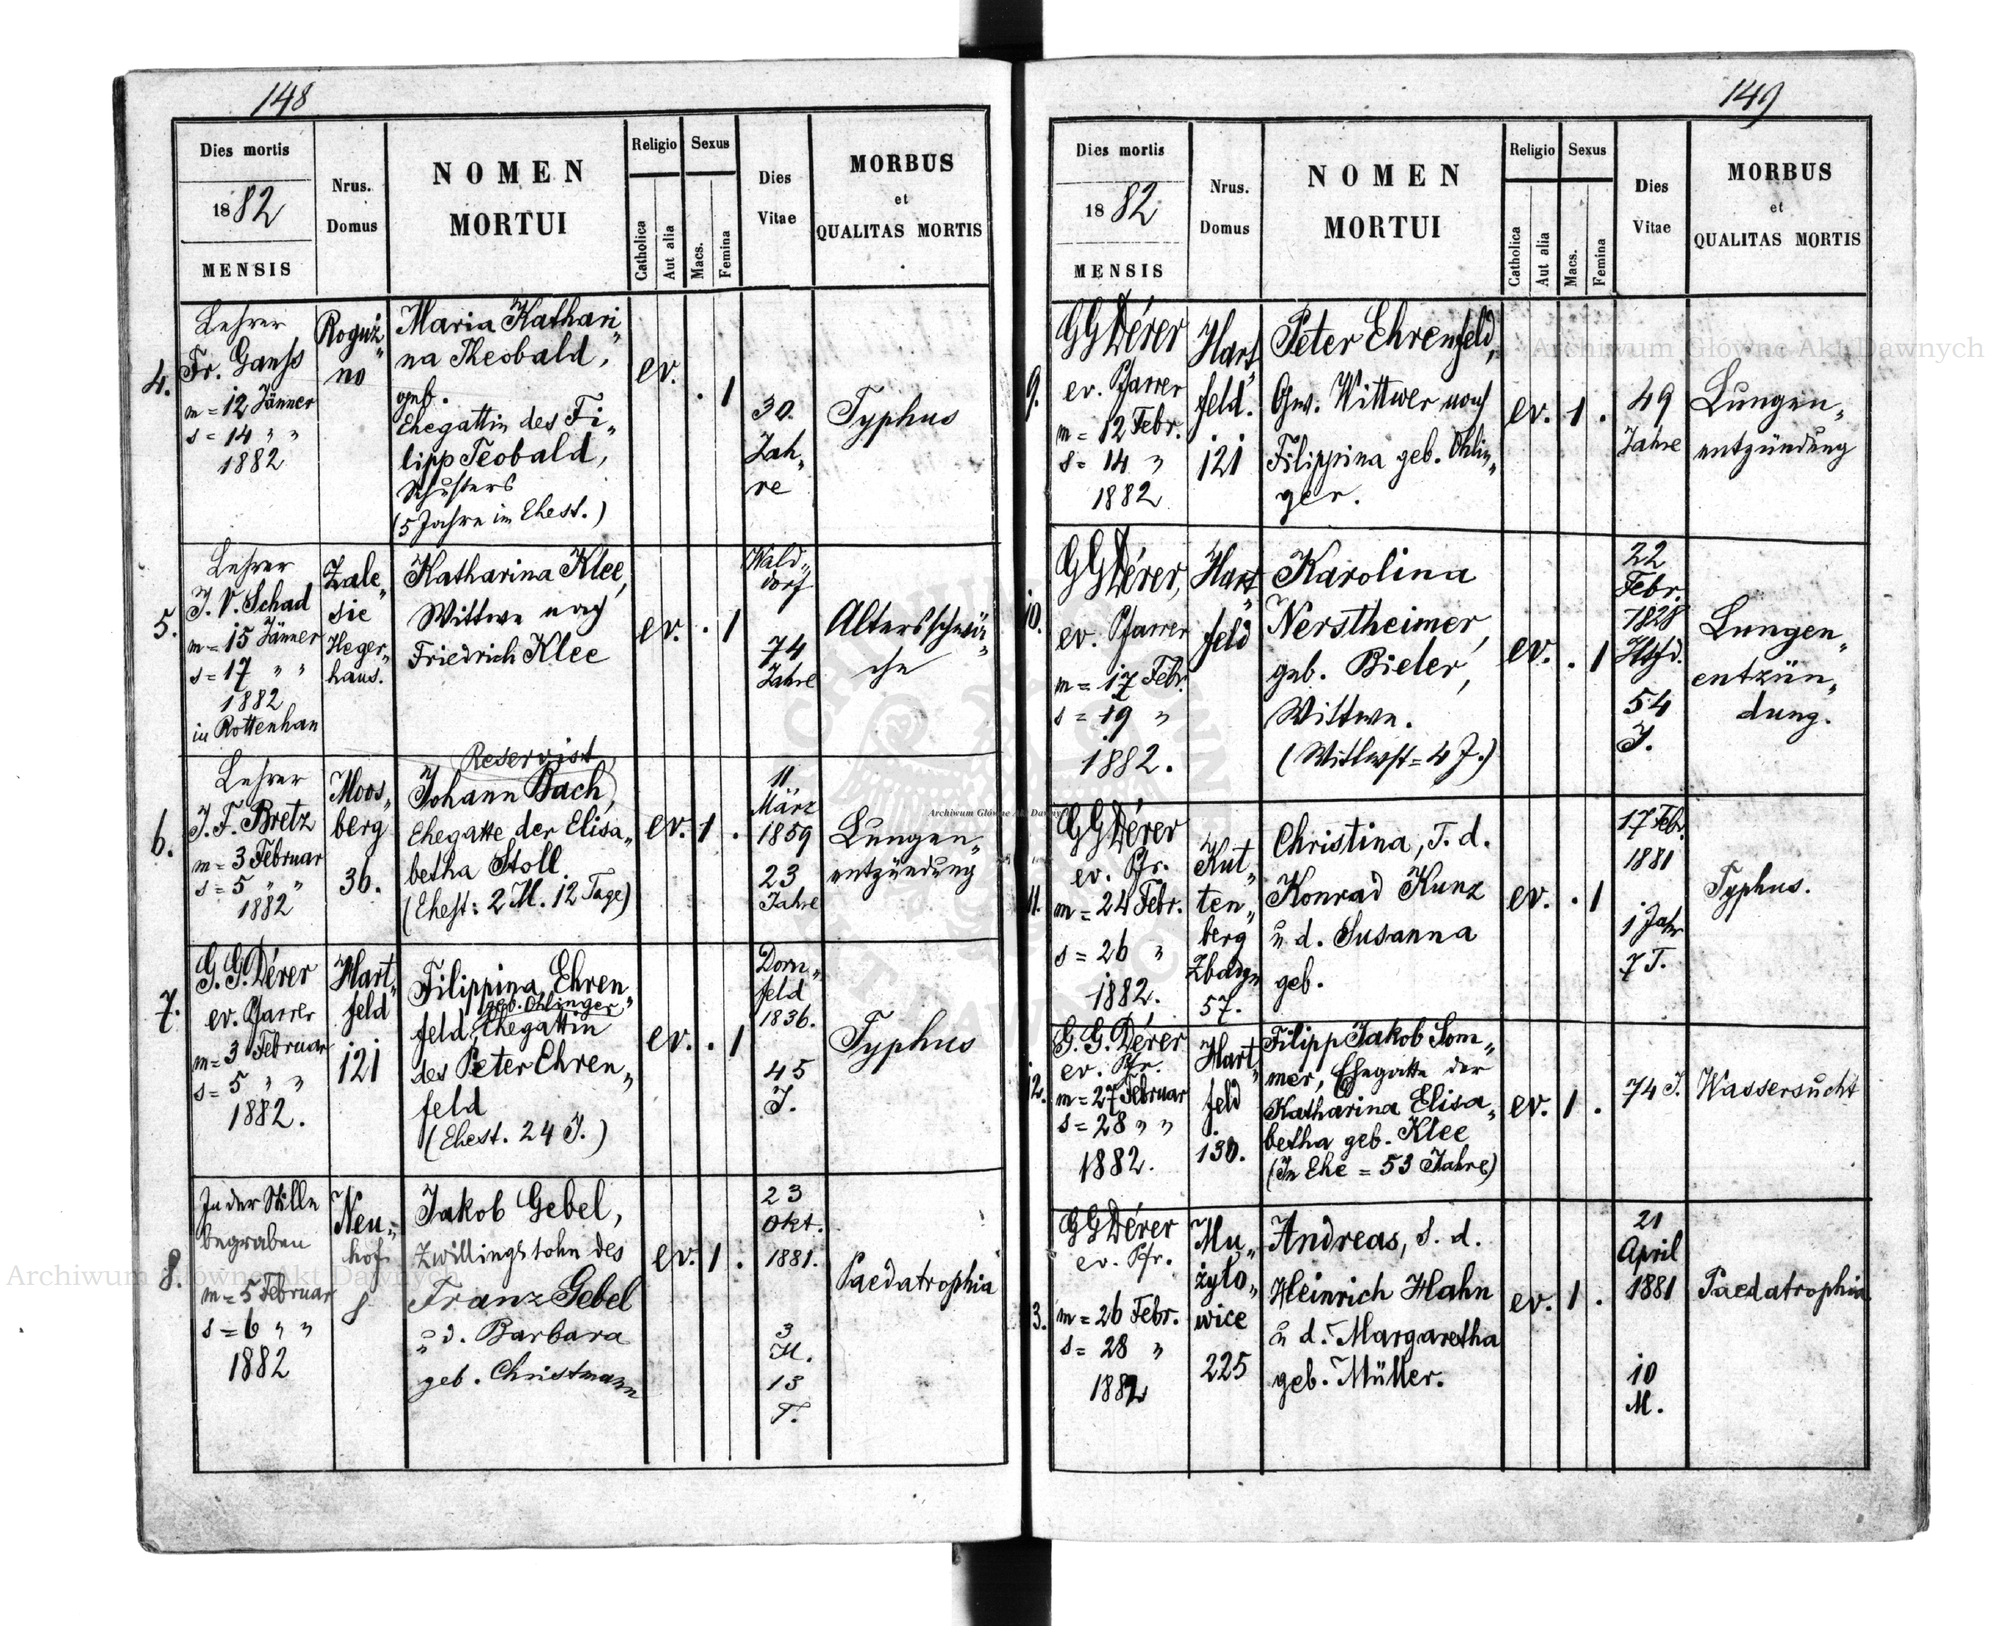 148
Dies mortis
1882
MENSIS
Nrus.
Domus
NOMEN
MORTUI
Religio
Catholica
Aut alia
Sexus
Macs.
Femina
Dies
Vitae
MORBUS
et
QUALITAS MORTIS
4.
Lehrer
Fr. Ganß
m = 12 Jänner
s = 14 " "
1882
Roguź„
no
Maria Kathari„
na Theobald,
geb.
Ehegattin des Fi„
lipp Teobald,
Schusters
(5 Jahre im Ehest.)
ev.
. 1
30.
Jah„
re
Typhus
5.
Lehrer
J. V. Schad
m = 15 Jänner
s = 17 " "
1882
in Rottenhan
Zale„
sie
Heger„
haus.
Katharina Klee,
Wittwe nach
Friedrich Klee
ev.
. 1
Wald„
dorf
74
Jahre
Altersschwä„
che
6.
Lehrer
J. F. Bretz
m = 3 Februar
s = 5 " "
1882
Moos„
berg
36.
Reservist
Johann Bach,
Ehegatte der Elisa„
betha Stoll.
(Ehest: 2 M. 12 Tage)
ev.
1 .
11
März
1859
23
Jahre
Lungen„
entzündung
7.
G. G. Dérer
ev. Pfarrer
m = 3 Februar
s = 5 " "
1882.
Hart„
feld
121
Filippina Ehren„
geb. Ohlinger
feld, Ehegattin
des Peter Ehren„
feld
(Ehest. 24 J.)
ev.
. 1
Dorn„
feld
1836.
45
J.
Typhus
8.
In der Stille
begraben
m = 5 Februar
s = 6 " "
1882
Neu„
hof
8
Jakob Gebel,
Zwillingssohn des
Franz Gebel
u d. Barbara
geb. Christmann
ev.
1 .
23
Okt.
1881.
3
M.
13
T.
Paedatrophia
149
Dies mortis
1882
MENSIS
Nrus.
Domus
NOMEN
MORTUI
Religio
Catholica
Aut alia
Sexus
Macs.
Femina
Dies
Vitae
MORBUS
et
QUALITAS MORTIS
9.
GGDérer
ev. Pfarrer
m = 12 Febr.
s = 14 "
1882
Hart„
feld.
121
Peter Ehrenfeld,
Gw. Wittwer nach
Filippina geb. Ohlin„
ger.
ev.
1 .
49
Jahre
Lungen„
entzündung
10.
GGDérer,
ev. Pfarrer
m = 17 Febr.
s = 19 "
1882.
Hart„
feld
Karolina
Nerstheimer,
geb. Bieler,
Wittwe.
(Wittwst = 4 J.)
ev.
. 1
22
Febr.
1828
Htfd.
54
J.
Lungen„
entzün„
dung.
11.
GGDérer
ev. Pfr.
m = 24 Febr.
s = 26 "
1882.
Kut„
ten„
berg
57.
Christina, T. d.
Konrad Kunz
u d. Susanna
geb.
ev.
. 1
17 Febr.
1881
1 Jahr
7 T.
Typhus.
12.
G. G. Dérer
ev. Pfr.
m = 27 Februar
s = 28 " "
1882.
Hart„
feld
130.
Filipp Jakob Som„
mer, Ehegatte der
Katharina Elisa„
betha geb. Klee
(In Ehe = 53 Jahre)
ev.
1 .
74 J.
Wassersucht
3.
GGDérer
ev. Pfr.
m = 26 Febr.
s = 28 "
1882
Mu„
żyło„
wice
225
Andreas, S. d.
Heinrich Hahn
u d. Margaretha
geb. Müller.
ev.
1 .
21
April
1881
10
M.
Paedatrophia
Archiwum Główne Akt Dawnych
Archiwum Główne Akt Dawnych
Archiwum Główne Akt Dawnych